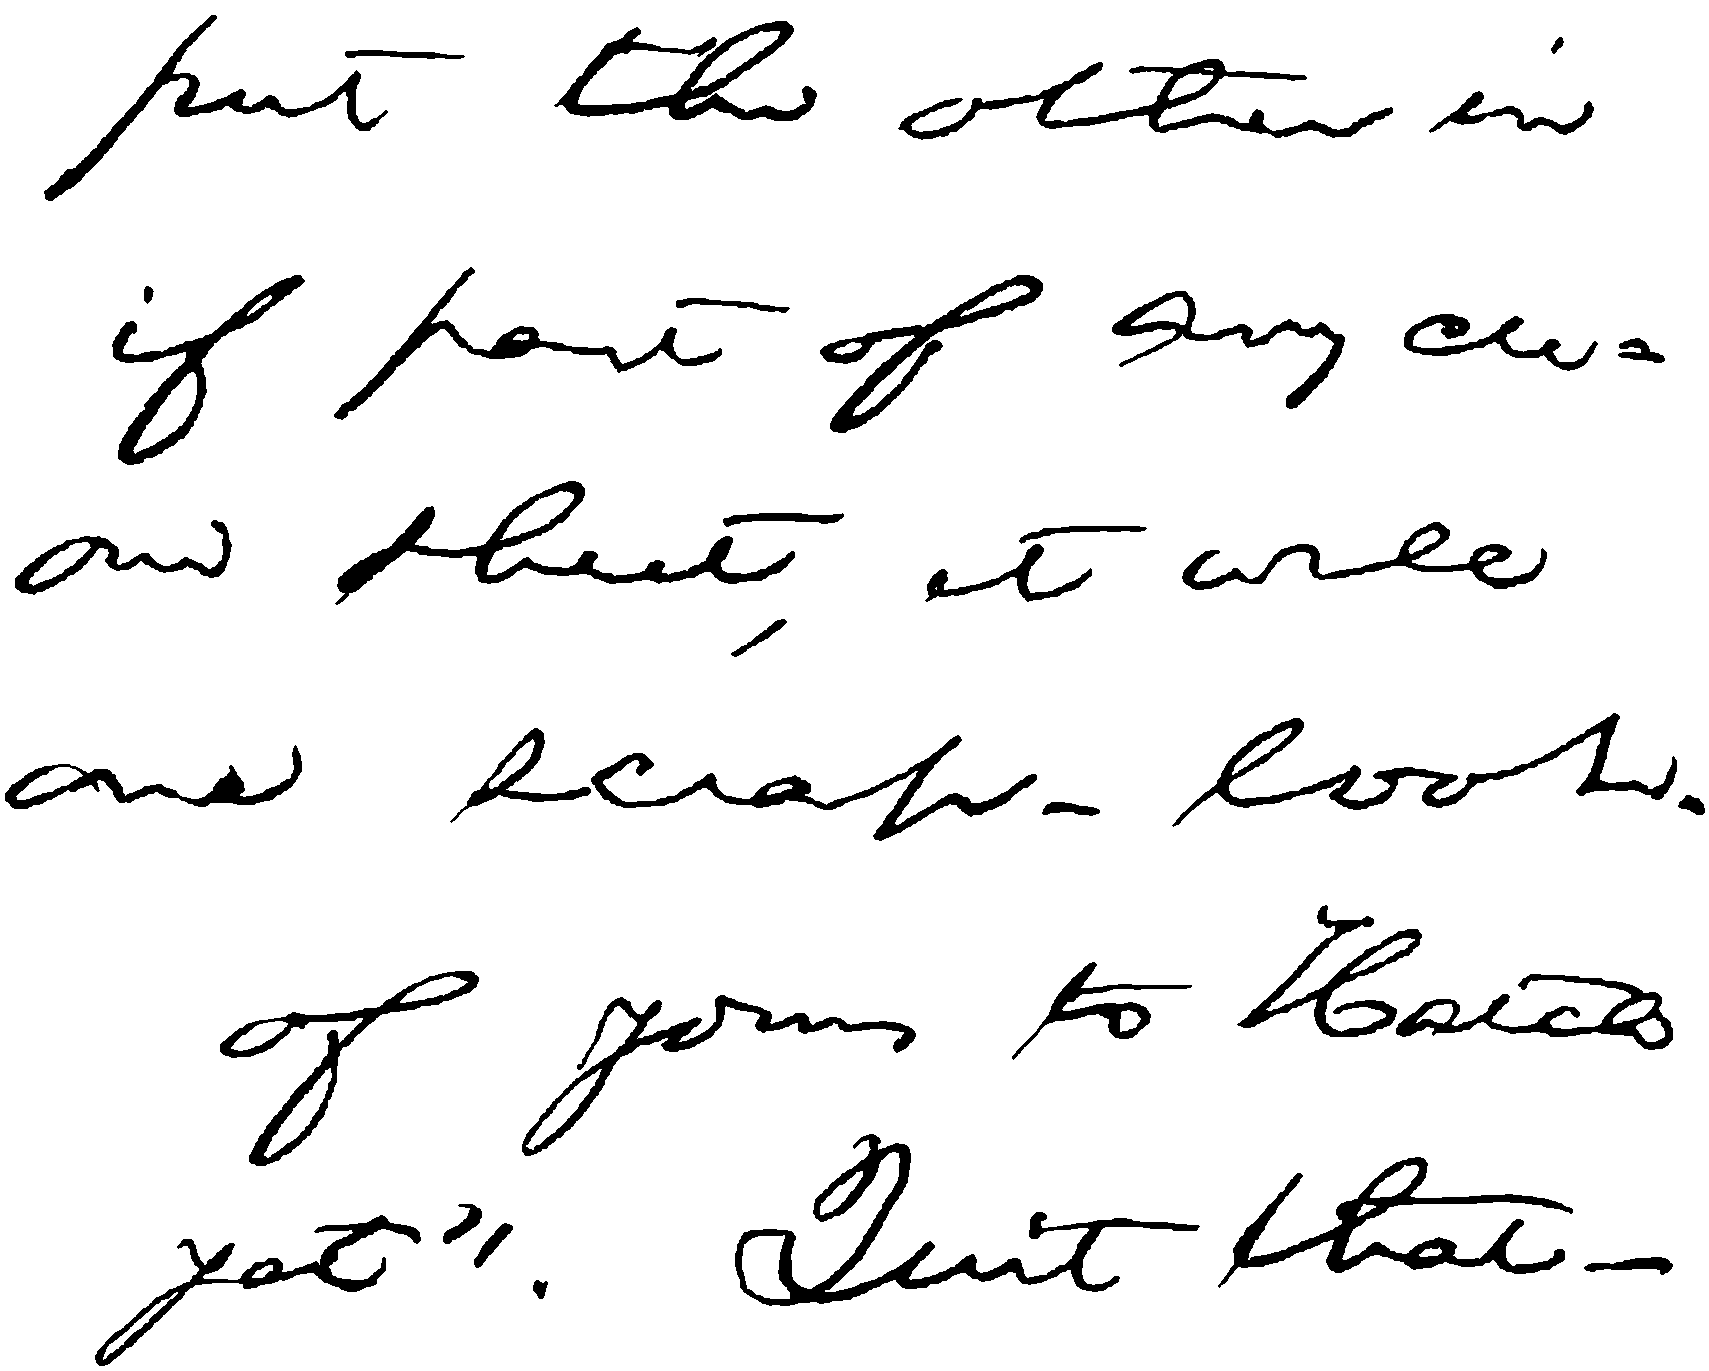 put the other in
if part of my
on sheet, it will
one scrap-book.
of yours to
yet". Quit that—